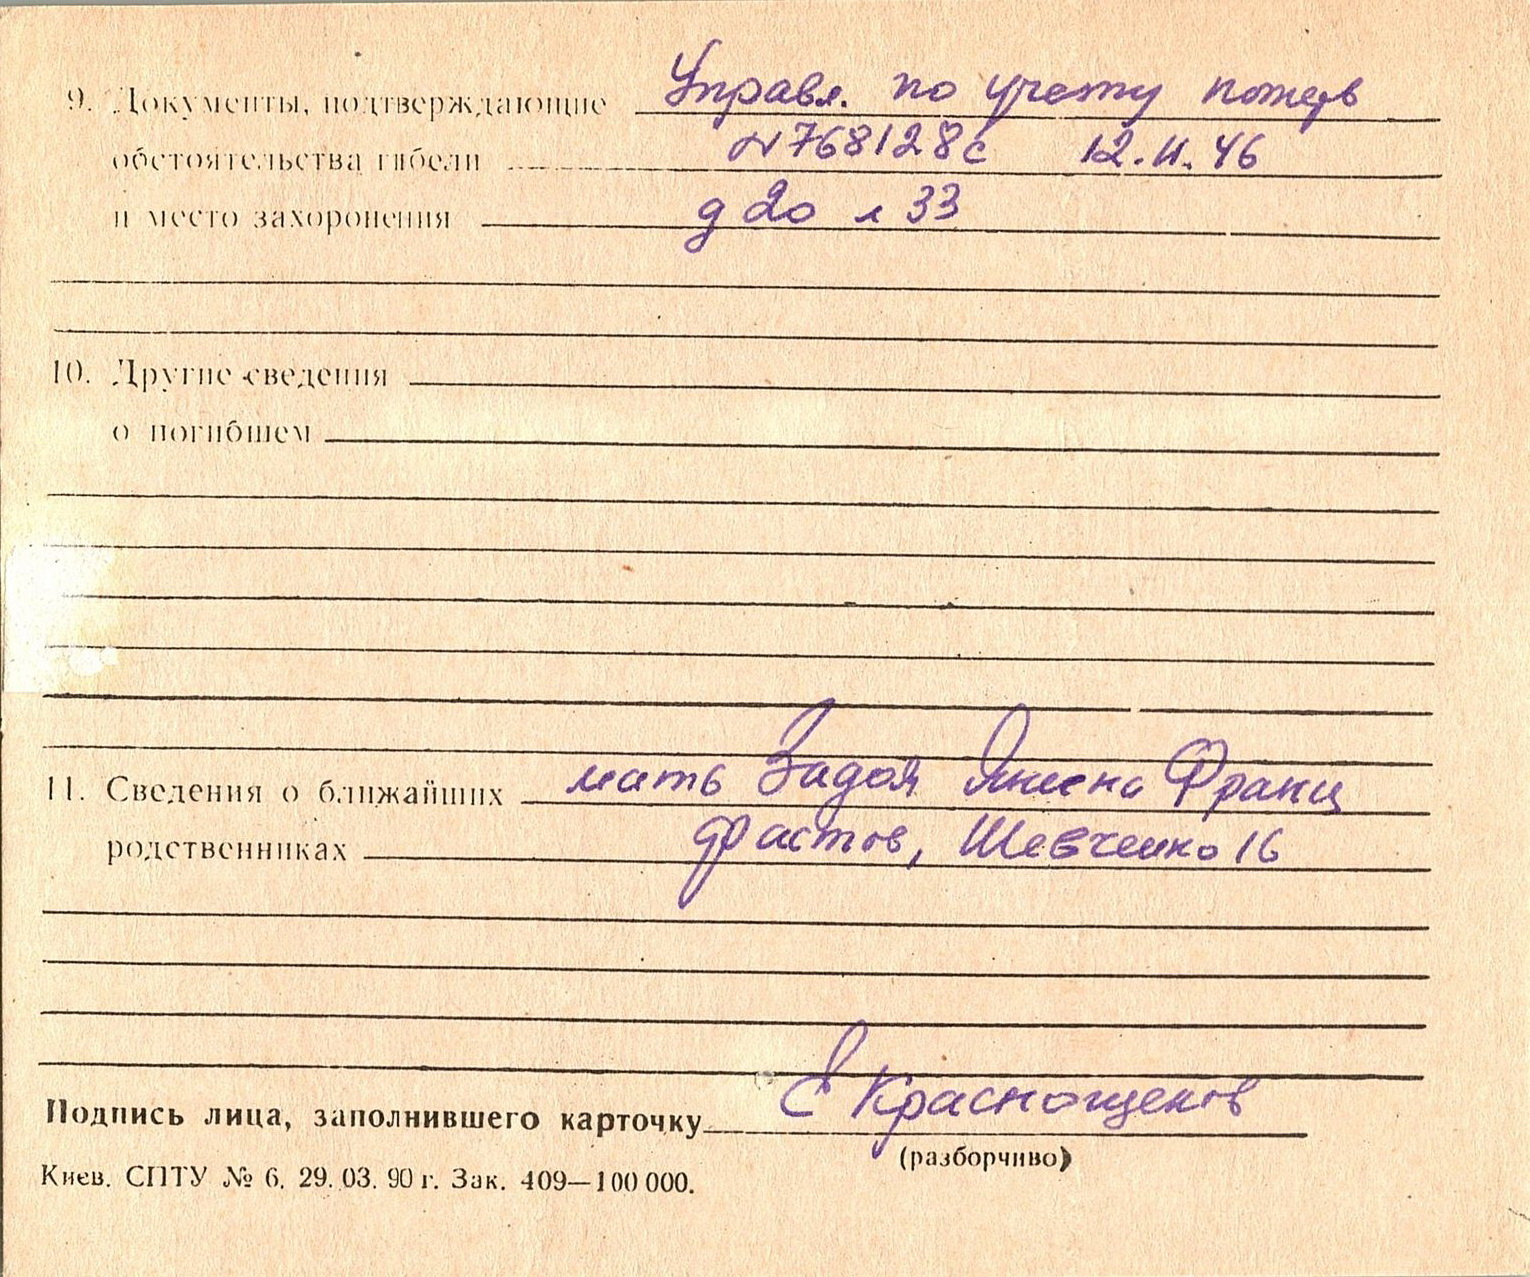 9. Документы, подтверждающие Управл. по учету потерь
обстоятельства гибели N 768128с 12.II.46
и место захоронения д 20 л 33
10. Другие сведения
о погибшем
11. Сведения о ближайших мать Задоя Янина Франц
родственниках Фастов, Шевченко 16
Подпись лица, заполнившего карточку Е Краснощеков
(разборчиво)
Киев. СПТУ № 6. 29. 03. 90 г. Зак. 409—100 000.